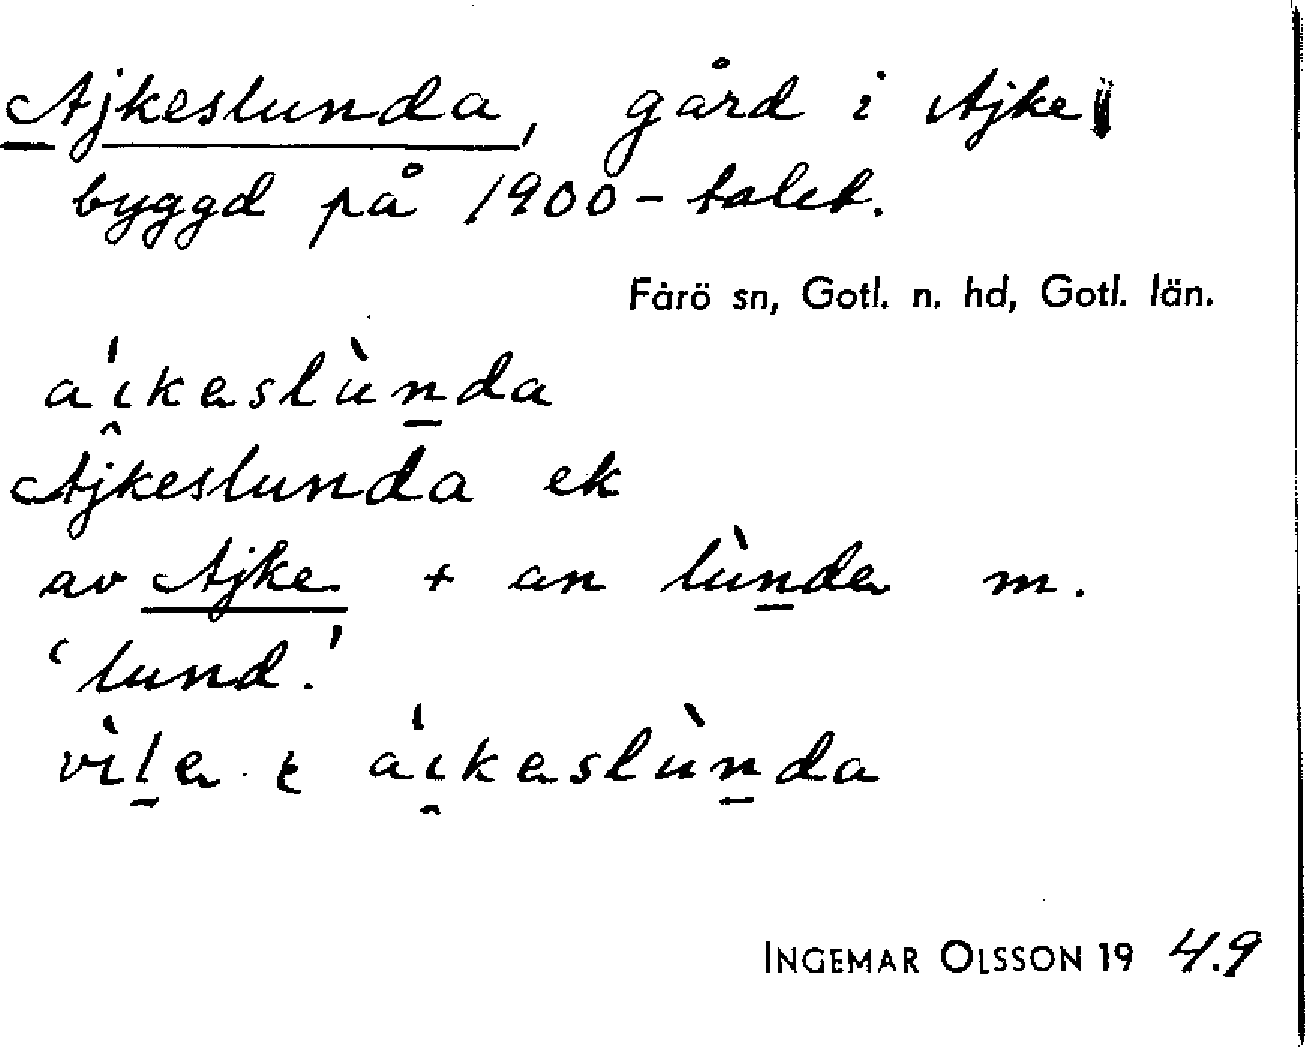 Ajkeslunda, gård i Ajke
byggd på 1900-talet.
Fårö sn, Gotl. n. hd, Gotl. län.
a'i̯kəslùn̠da
Ajkeslunda ek
av Ajke + an lùn̠də m.
‘lund.’
vìl̠ə ɩ a'i̯kəslùn̠da
INGEMAR OLSSON 19 49